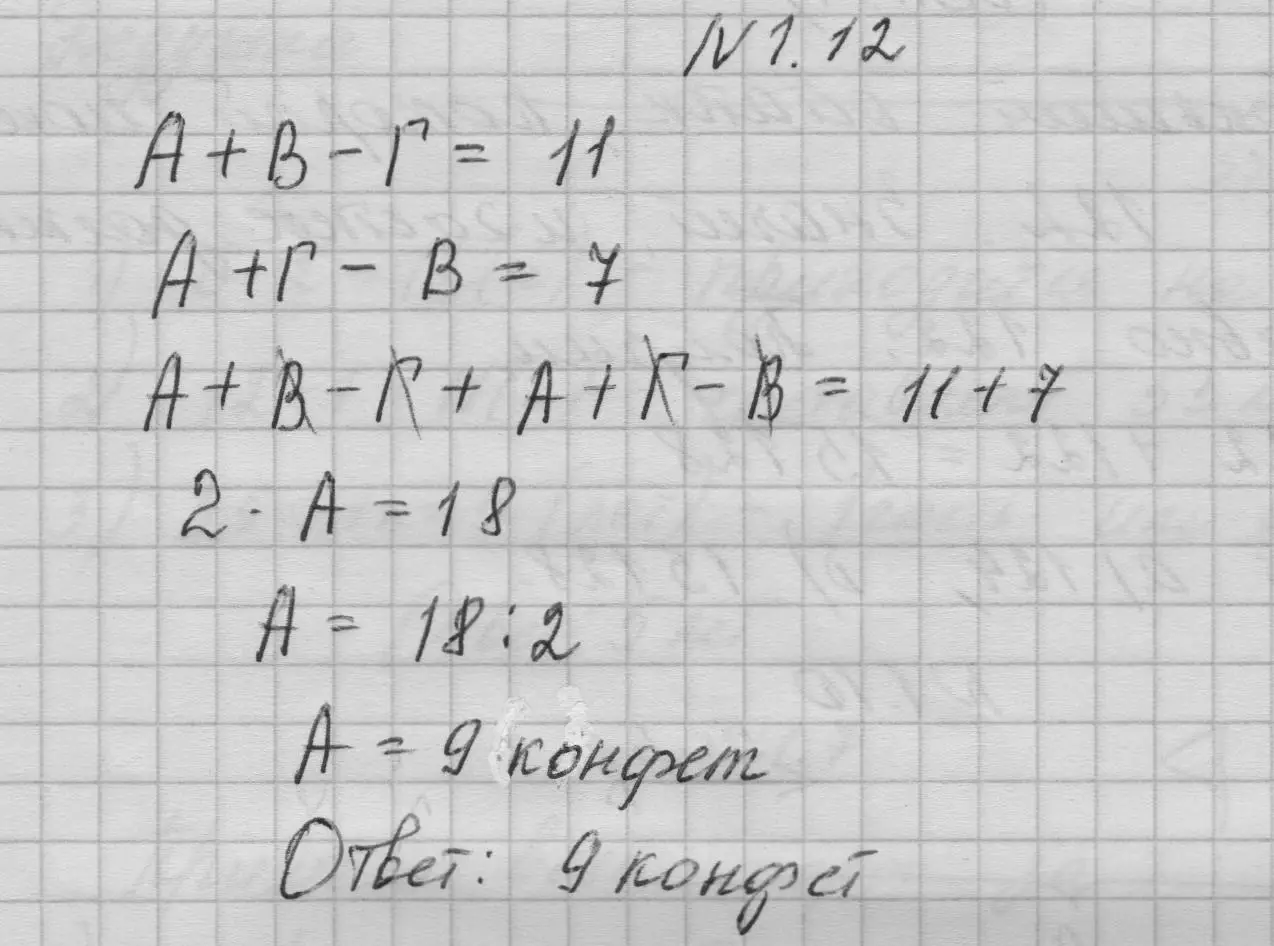 N 1. 12
А + В - Г = 11
А + Г - В = 7
А + В - Г + А + Г - В = 11 + 7
2 · А = 18
А = 18 : 2
А = 9 конфет
Ответ: 9 конфет